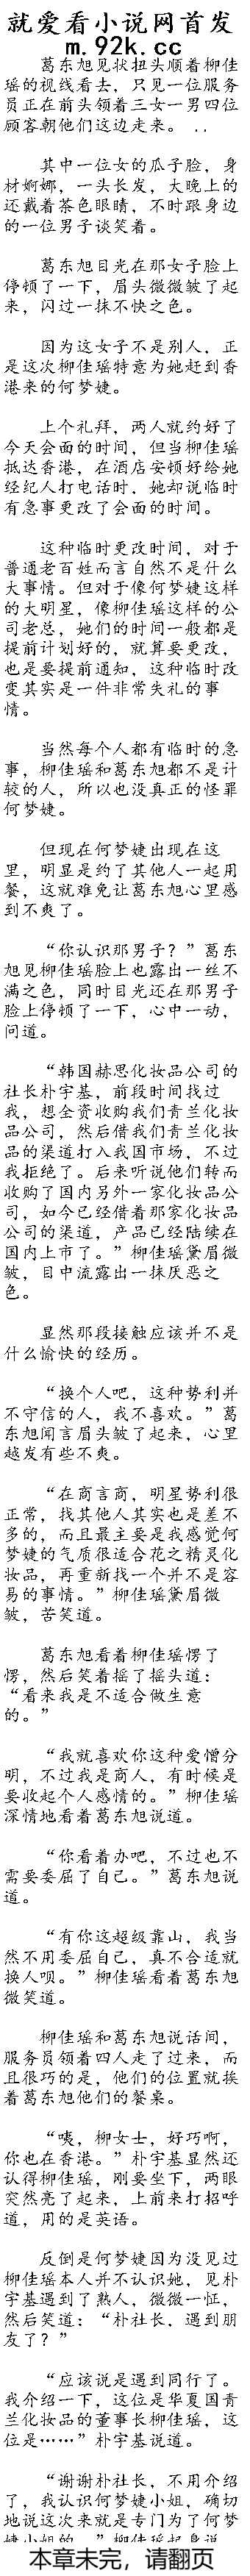 就爱看小说网首发
m.92k.cc
葛东旭见状扭头顺着柳佳
瑶的视线看去，只见一位服务
员正在前头领着三女一男四位
顾客朝他们这边走来。 ..
其中一位女的瓜子脸，身
材婀娜，一头长发，大晚上的
还戴着茶色眼睛，不时跟身边
的一位男子谈笑着。
葛东旭目光在那女子脸上
停顿了一下，眉头微微皱了起
来，闪过一抹不快之色。
因为这女子不是别人，正
是这次柳佳瑶特意为她赶到香
港来的何梦婕。
上个礼拜，两人就约好了
今天会面的时间，但当柳佳瑶
抵达香港，在酒店安顿好给她
经纪人打电话时，她却说临时
有急事更改了会面的时间。
这种临时更改时间，对于
普通老百姓而言自然不是什么
大事情。但对于像何梦婕这样
的大明星，像柳佳瑶这样的公
司老总，她们的时间一般都是
提前计划好的，就算要更改，
也是要提前通知，这种临时改
变其实是一件非常失礼的事
情。
当然每个人都有临时的急
事，柳佳瑶和葛东旭都不是计
较的人，所以也没真正的怪罪
何梦婕。
但现在何梦婕出现在这
里，明显是约了其他人一起用
餐，这就难免让葛东旭心里感
到不爽了。
“你认识那男子？”葛东
旭见柳佳瑶脸上也露出一丝不
满之色，同时目光还在那男子
脸上停顿了一下，心中一动，
问道。
“韩国赫思化妆品公司的
社长朴宇基，前段时间找过
我，想全资收购我们青兰化妆
品公司，然后借我们青兰化妆
品的渠道打入我国市场，不过
我拒绝了。后来听说他们转而
收购了国内另外一家化妆品公
司，如今已经借着那家化妆品
公司的渠道，产品已经陆续在
国内上市了。”柳佳瑶黛眉微
皱，目中流露出一抹厌恶之
色。
显然那段接触应该并不是
什么愉快的经历。
“换个人吧，这种势利并
不守信的人，我不喜欢。”葛
东旭闻言眉头皱了起来，心里
越发有些不爽。
“在商言商，明星势利很
正常，找其他人其实也是差不
多的，而且最主要是我感觉何
梦婕的气质很适合花之精灵化
妆品，再重新找一个并不是容
易的事情。”柳佳瑶黛眉微
皱，苦笑道。
葛东旭看着柳佳瑶愣了
愣，然后笑着摇了摇头道：
“看来我是不适合做生意
的。”
“我就喜欢你这种爱憎分
明，不过我是商人，有时候是
要收起个人感情的。”柳佳瑶
深情地看着葛东旭说道。
“你看着办吧，不过也不
需要委屈了自己。”葛东旭说
道。
“有你这超级靠山，我当
然不用委屈自己，真不合适就
换人呗。”柳佳瑶看着葛东旭
微笑道。
柳佳瑶和葛东旭说话间，
服务员领着四人走了过来，而
且很巧的是，他们的位置就挨
着葛东旭他们的餐桌。
“咦，柳女士，好巧啊，
你也在香港。”朴宇基显然还
认得柳佳瑶，刚要坐下，两眼
突然亮了起来，上前来打招呼
道，用的是英语。
反倒是何梦婕因为没见过
柳佳瑶本人并不认识她，见朴
宇基遇到了熟人，微微一怔，
然后笑道：“朴社长，遇到朋
友了？”
“应该说是遇到同行了。
我介绍一下，这位是华夏国青
兰化妆品的董事长柳佳瑶，这
位是……”朴宇基说道。
“谢谢朴社长，不用介绍
了，我认识何梦婕小姐，确切
地说这次来就是专门为了何梦
婕小姐的。”柳佳瑶起身说
本章未完，请翻页